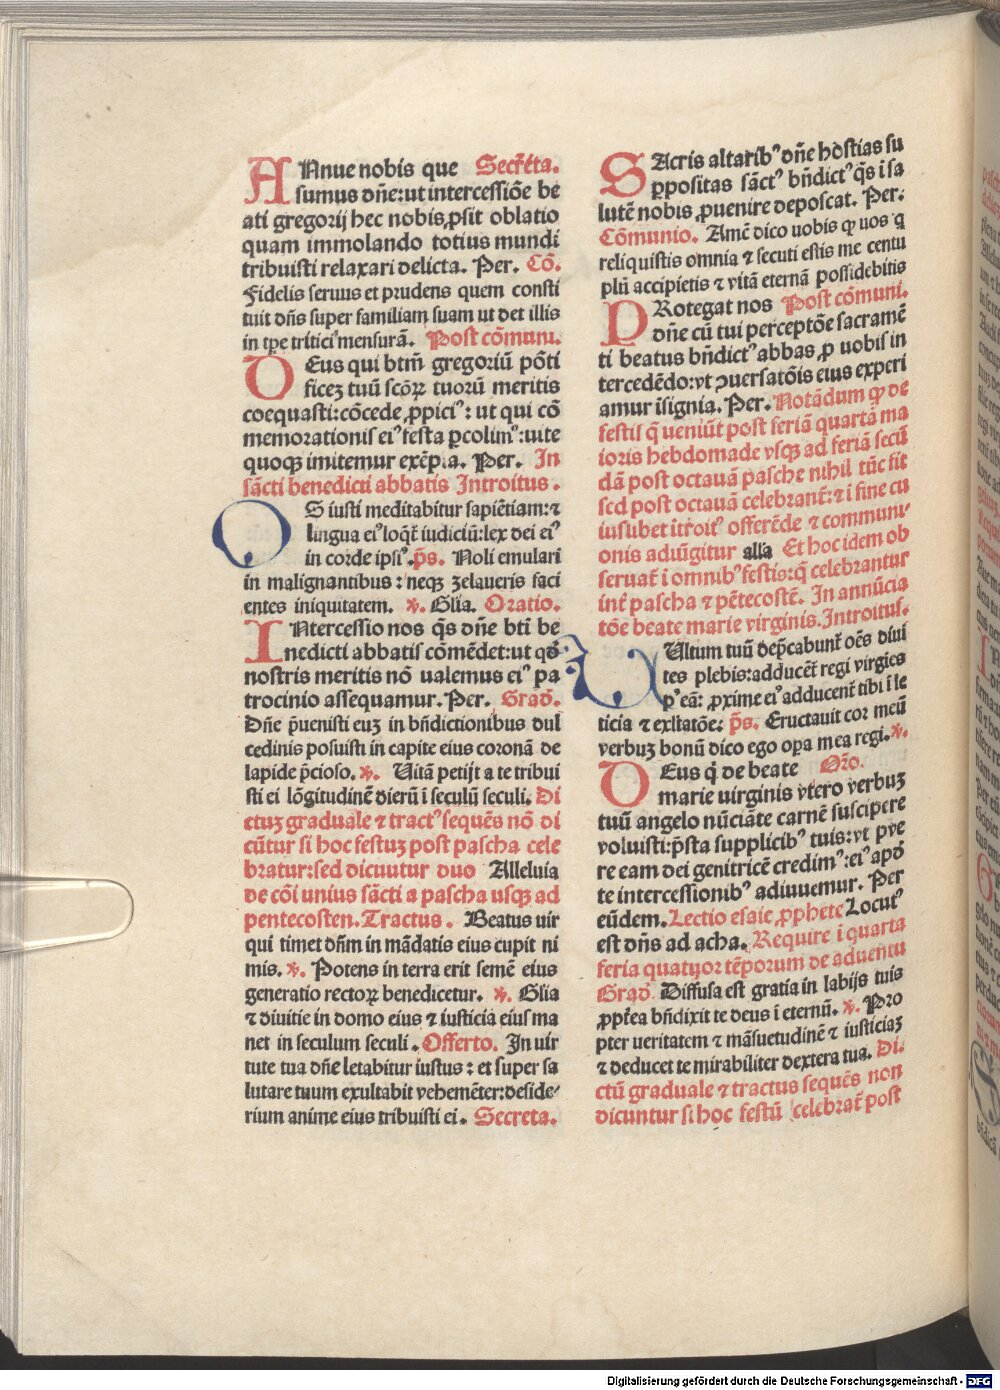 ANnue nobis que Secrēta.
sumus dñe: ut intercessiōe be
ati gregorij hec nobis ꝓsit oblatio
quam immolando totius mundi
tribuisti relaxari delicta. Per. Cō.
Fidelis seruus et prudens quem consti
tuit dñs super familiam suam ut det illis
in tꝑe tritici mensurā. Post cōmuni.
DEus qui btm̄ gregoriū pōti
ficeꝫ tuū scōꝝ tuorū meritis
coequasti: cōcede ꝓpiciꝰ: ut qui cō
memorationis eiꝰ festa ꝑcolimꝰ: uite
quoqꝫ imitemur exēpla. Per. In
sācti benedicti abbatis Introitus.
OS iusti meditabitur sapiētiam: ⁊
lingua eiꝰ loqͥt̄ iudiciū: lex dei eiꝰ
in corde ipsiꝰ. p̄s. Noli emulari
in malignantibus: neqꝫ zelaueris faci
entes iniquitatem. ℣. Glīa. Oratio.
INtercessio nos q̄s dñe bti̅ be
nedicti abbatis cōmēdet: ut qđ
nostris meritis nō ualemus eiꝰ pa
trocinio assequamur. Per. Grad̄.
Dñe p̄uenisti euꝫ in bñdictionibus dul
cedinis posuisti in capite eius coronā de
lapide p̄cioso. ℣. Uitā petijt a te tribui
sti ei lōgitudinē dierū ī seculū seculi. Di
ctuꝫ graduale ⁊ tractꝰ sequēs nō di
cūtur si hoc festuꝫ post pascha cele
bratur: sed dicuutur duo Alleluia
de cōi unius sācti a pascha usqꝫ ad
pentecosten. Tractus. Beatus uir
qui timet dñm in mādatis eius cupit ni
mis. ℣. Potens in terra erit semē eius
generatio rectoꝝ benedicetur. ℣. Glīa
⁊ diuitie in domo eius ⁊ iusticia eius ma
net in seculum seculi. Offerto. In uir
tute tua dñe letabitur iustus: et super sa
lutare tuum exultabit vehemēter: deside
rium anime eius tribuisti ei. Secreta.
SAcris altaribꝰ dñe hostias su
ꝑpositas sāctꝰ bñdictꝰ q̄s ī sa
lutē nobis ꝓuenire deposcat. Per.
Cōmunio. Amē dico uobis ꝙ uos q̄
reliquistis omnia ⁊ secuti estis me centu
plū accipietis ⁊ vitā eternā possidebitis
PRotegat nos Post cōmuni.
dñe cū tui perceptōe sacramē
ti beatus bñdictꝰ abbas ꝓ uobis in
tercedēdo: vt ꝯuersatōis eius experi
amur īsignia. Per. Notādum ꝙ de
festis q̄ ueniūt post feriā quartā ma
ioris hebdomade vsqꝫ ad feriā secū
dā post octauā pasche nihil tūc fit
sed post octauā celebrant̄: ⁊ ī fine cu
iuslibet ītroitꝰ offerēde ⁊ communi
onis adiūgitur alīa Et hoc idem ob
seruat̄ ī omnibꝰ festis: q̄ celebrantur
int̄ pascha ⁊ pētecostē. In annūcia
tōe beate marie virginis. Introitus.
VUltum tuū dep̄cabunt̄ oēs diui
tes plebis: adducēt̄ regi virgies
pꝰ eā: ꝓxime eiꝰ adducent̄ tibi ī le
ticia ⁊ exltatōe: p̄s. Eructauit cor meū
verbuꝫ bonū dico ego oꝑa mea regi. ℣.
DEus qͥ de beate Orō.
marie uirginis vtero verbuꝫ
tuū angelo nūciāte carnē suscipere
voluisti: p̄sta supplicibꝰ tuis: vt qui ve
re eam dei genitricē credimꝰ: eiꝰ apđ
te intercessionibꝰ adiuuemur. Per
eūdem. Lectio esaie ꝓphete Locutꝰ
est dñs ad acha. Require ī quarta
feria quatuor tēporum de aduentu
Grad̄ Diffusa est gratia in labijs tuis
ꝓpt̄ea bñdixit te deus ī eternū. ℣. Pro
pter ueritatem ⁊ māsuetudinē ⁊ iusticiaꝫ
⁊ deducet te mirabiliter dextera tua. Di
ctū graduale ⁊ tractus sequēs non
dicuntur si hoc festū celebrat̄ post
Digitalisierung gefördert durch die Deutsche Forschungsgemeinschaft - DFG